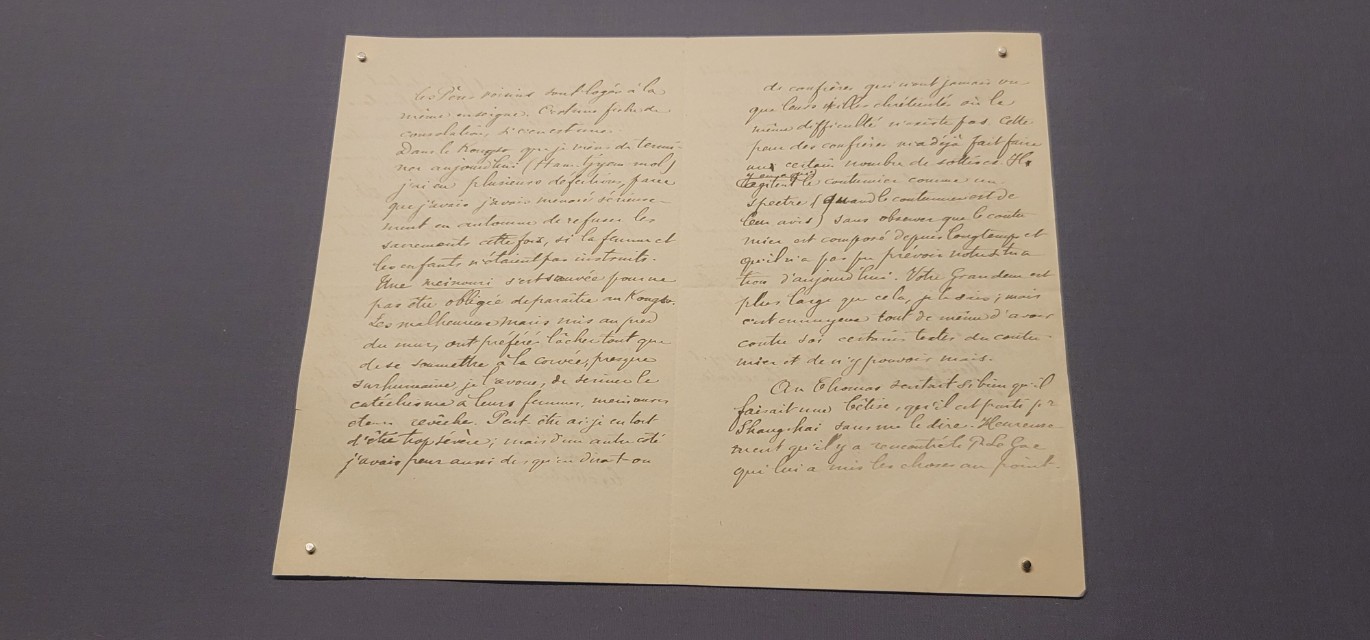 les Pères voisins sont logés à la
même enseigne. C'est une fiche de
consolation, si c'en est une.
Dans le Kongso que je viens de termi-
ner aujourd'hui
j'ai eu plusieurs défections, parce
que j'avais menacé sérieuse-
ment en automne de refuser les
sacrements cette fois, si la femme et
les enfants n'étaient pas instruits.
Une meinouri s'est sauvée pour ne
pas être obligée de paraître au Kongso.
Les malheureux maris mis au pied
du mur, ont préféré lâcher tout que
de se soumettre à la corvée, presque
surhumaine je l'avoue, de seriner le
catéchisme à leurs femmes, meinouris
revêche. Peut-être ai-je eu tort
d'être trop sévère; mais d'un autre côté
j'avais peur aussi des qu'en dirat-on
de confrères qui n'ont jamais vu
que leurs villes chrétientés où la
même difficulté n'existe pas. Cette
peur des confrères m'a déjà fait faire
un certain nombre de sottises. Ils
le coutumier comme un
spectre (quand le coutumier est de
leur avis) sans observer que le coutu-
mier est composé depuis longtemps et
qu'il n'a pas pu prévoir notre situa
tion d'aujourd'hui. Votre Grandeur est
plus large que cela, je le sais; mais
c'est ennuyeux tout de même d'avoir
contre soi certains textes du coutu-
mier et de n'y pouvoir mais.
An Thomas sentait si bien qu'il
faisait une bêtise, qu'il est parti pr
Shanghai sans me le dire. Heureuse
ment qu'il y a rencontré le P. Le Gac
qui lui a mis les choses au point.